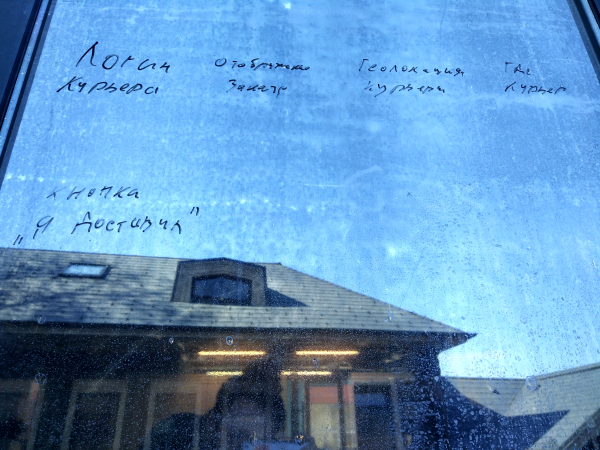 Логин
Курьера
Отображение
Заказа
Геолокация
Курьера
Где
Курьер
Кнопка
"Я Доставил"